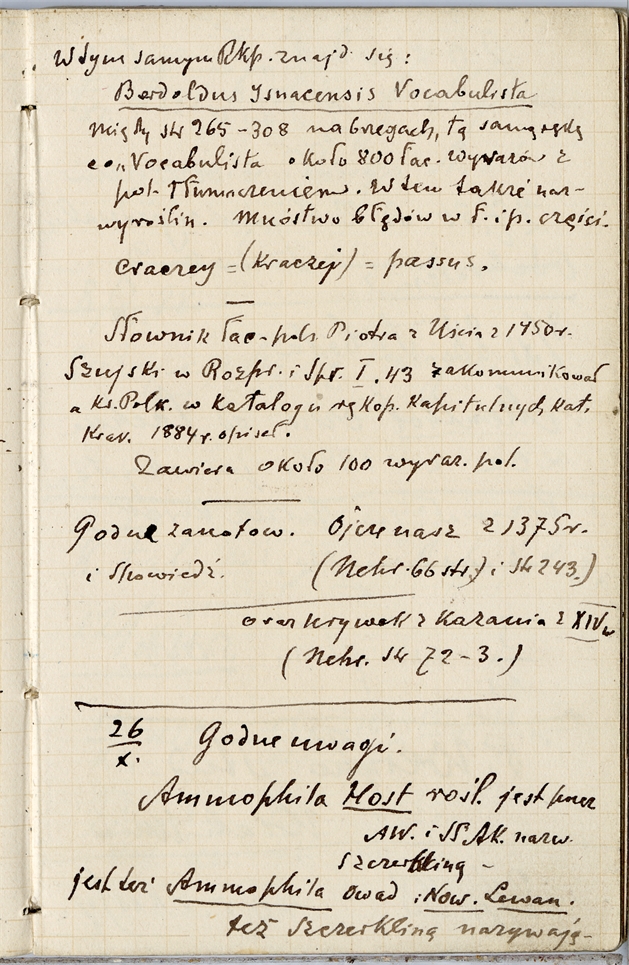 W tym samym Rkp. znajd. się:
Bertoldus Isnacensis Vocabulista
między str 265–308 na brzegach, tą samą ręką
co „Vocabulista około 800 łac. wyrazów z
pol. tłumaczeniem. W tem także naz–
wy roślin. Mnóstwo błędów w ł. i p. części.
Craczey = (Kraczej) = passus.
Słownik łac–pols. Piotra z Uścia z 1450 r.
Szujski w Rozpr. i Spr. I. 43 zakomunikował
a ks. Polk. w Katalogu rękop. Kapitulnych Kat.
Krak. 1884 r. opisał.
Zawiera około 100 wyraz. pol.
Godne zanotow. Ojcze nasz z 1375 r.
i Spowiedź. (Nehr. 66 str.) i str 243.)
oraz urywek z Kazania z XIV w
(Nehr. str 72–3.)
26
x. Godne uwagi.
Ammophila Host rośl. jest przez
AW. i SS AK. nazw.
szczerkliną –
jest też Ammophila owad i Now. Lewan.
też szczerkliną nazywają–